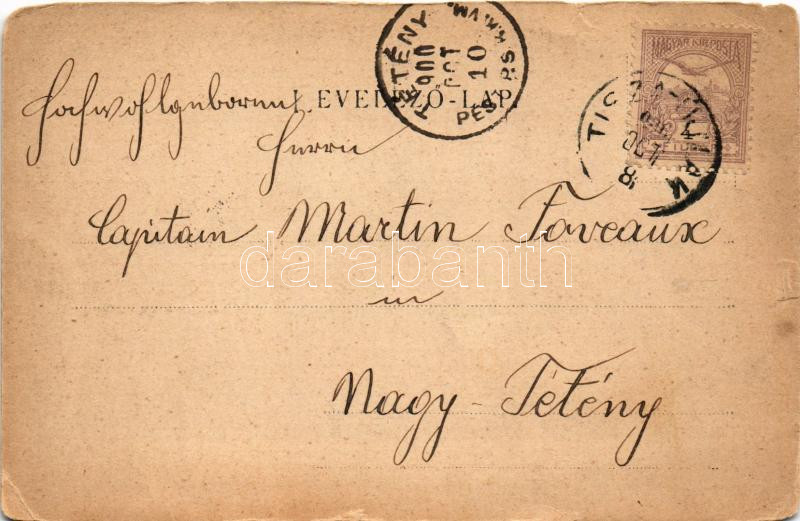 TÉTÉNY
900
OCT
10
MAGYAR KIR. POSTA
LEVELEZŐ-LAP.
Hochwohlgeboren
Herrn
Capitain Martin Foveaux
darabanth
in
Nagy-Tétény